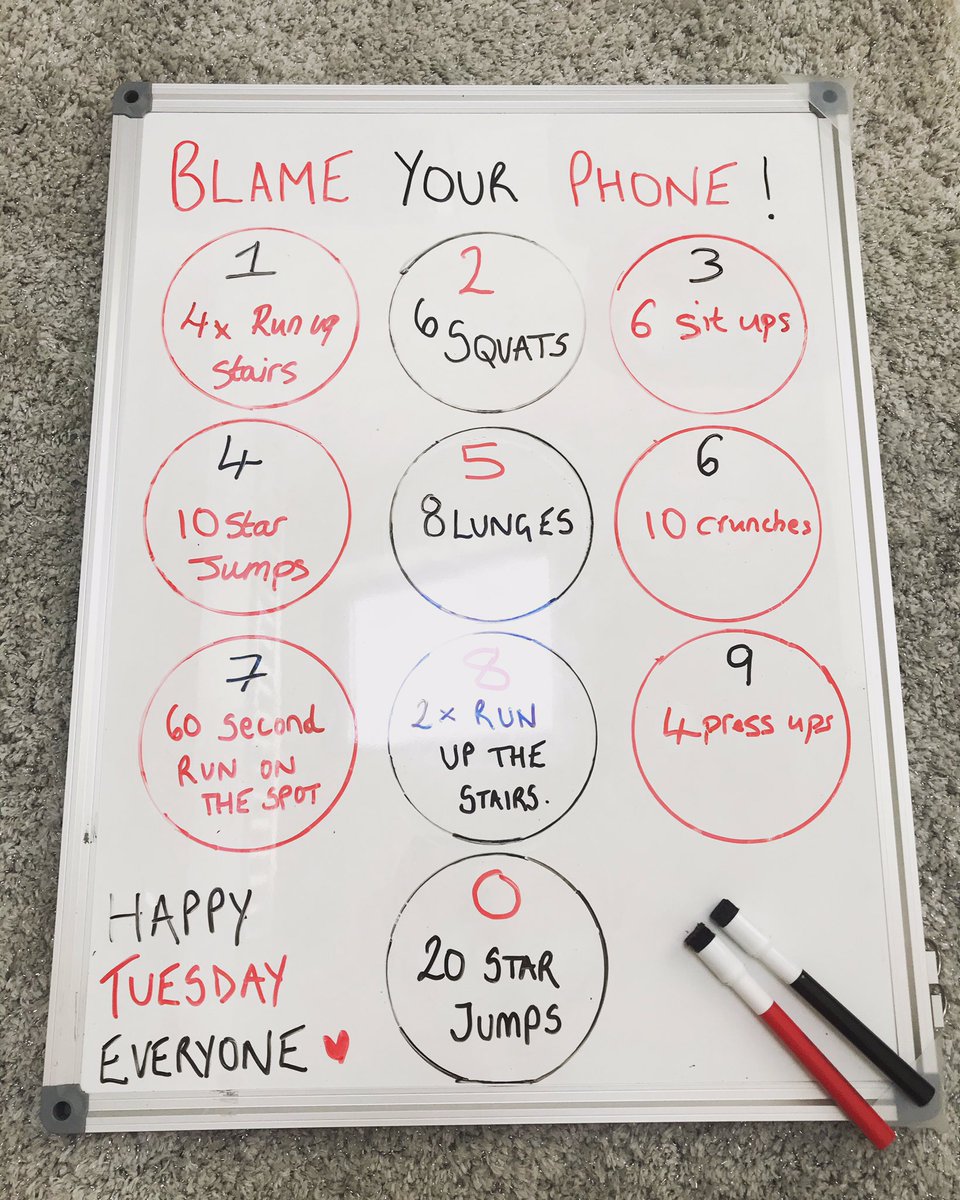 BLAME YOUR PHONE!
1
4x Run up
stairs
2
6 SQUATS
3
6 sit ups
4
10 Star
Jumps
5
8 LUNGES
6
10 crunches
7
60 second
RUN ON
THE SPOT
8
2x RUN
UP THE
STAIRS.
9
4 press ups
0
20 STAR
JUMPS
HAPPY
TUESDAY
EVERYONE ♥